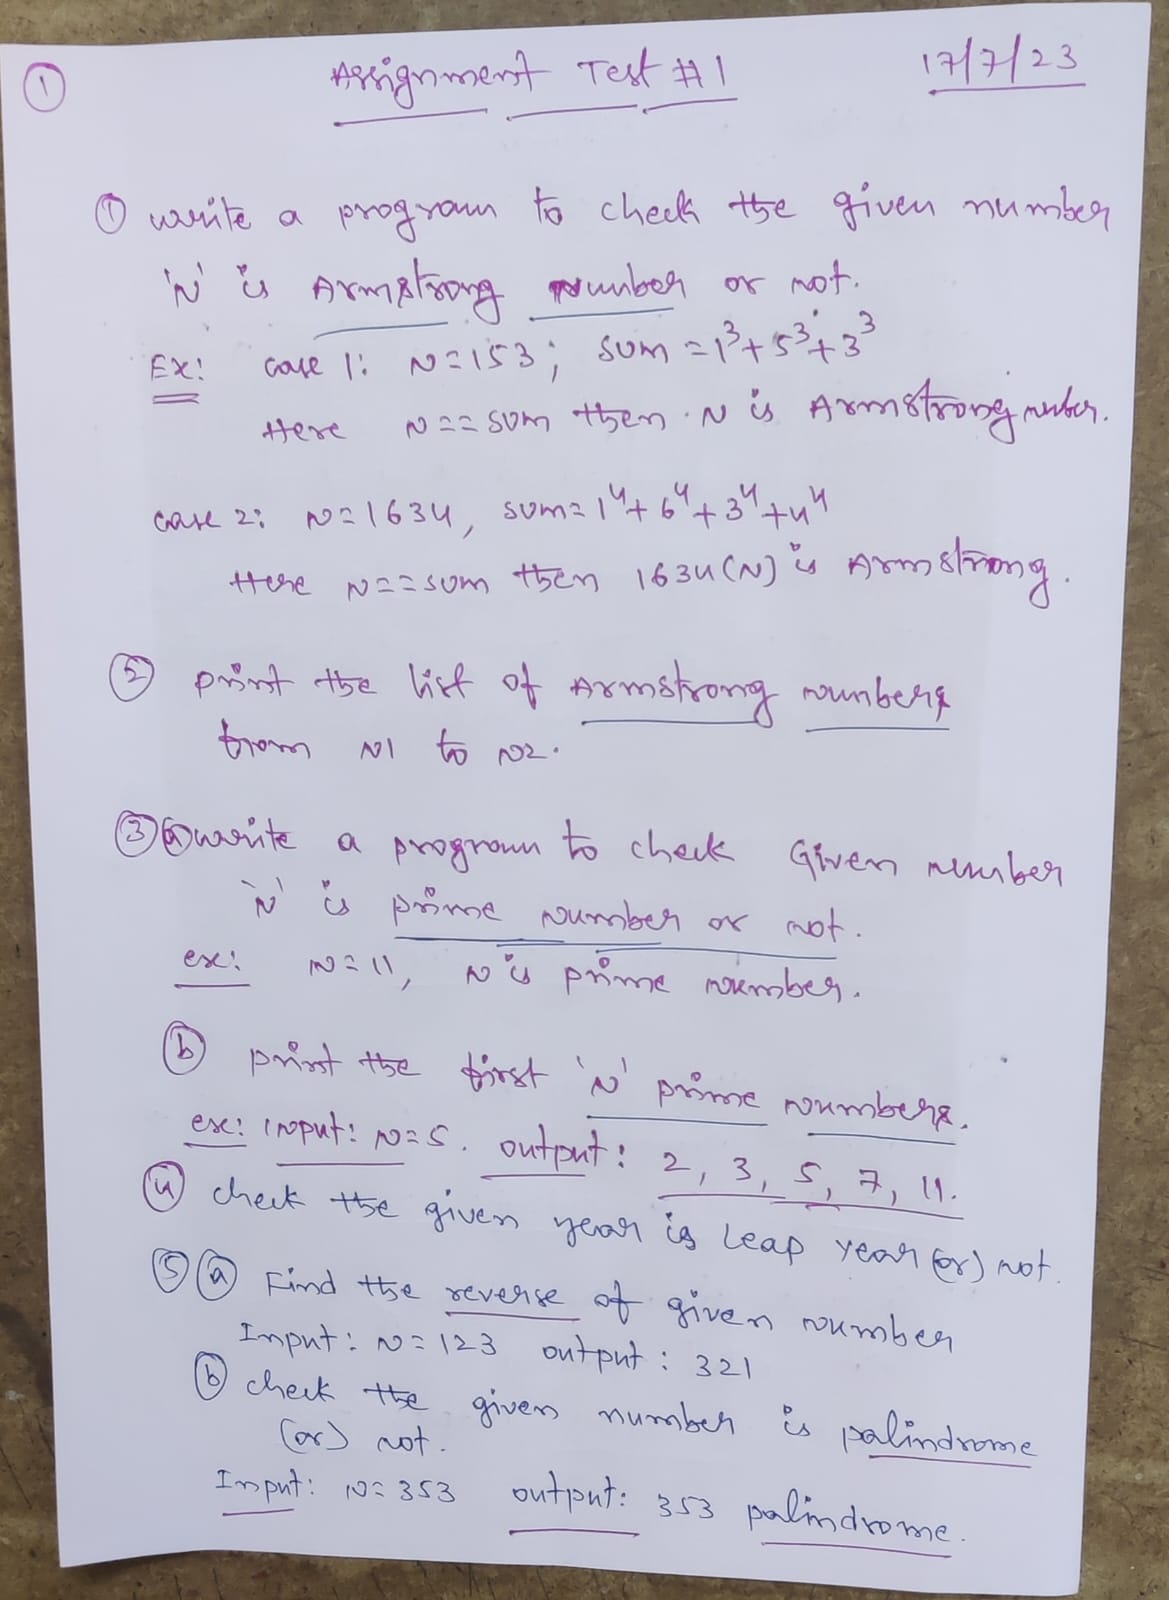 1
Assignment Test #1
17/7/23
① write a program to check the given number
'N' is Armstrong Number or not.
Ex: case 1: N=153; sum = 1³+5³+3³
Here N==sum then N is Armstrong number.
case 2: N=1634, sum=1⁴+6⁴+3⁴+4⁴
Here N==sum then 1634(N) is Armstrong.
② print the list of Armstrong numbers
from N1 to N2.
③ ⓐ write a program to check Given number
'N' is prime number or not.
ex: N=11, N is prime number.
ⓑ print the first 'N' prime numbers.
ex: input: N=5. output: 2, 3, 5, 7, 11.
④ check the given year is Leap year (or) not.
⑤ ⓐ Find the reverse of given number
Input: N=123 output: 321
ⓑ check the given number is palindrome
(or) not.
Input: N=353 output: 353 palindrome.